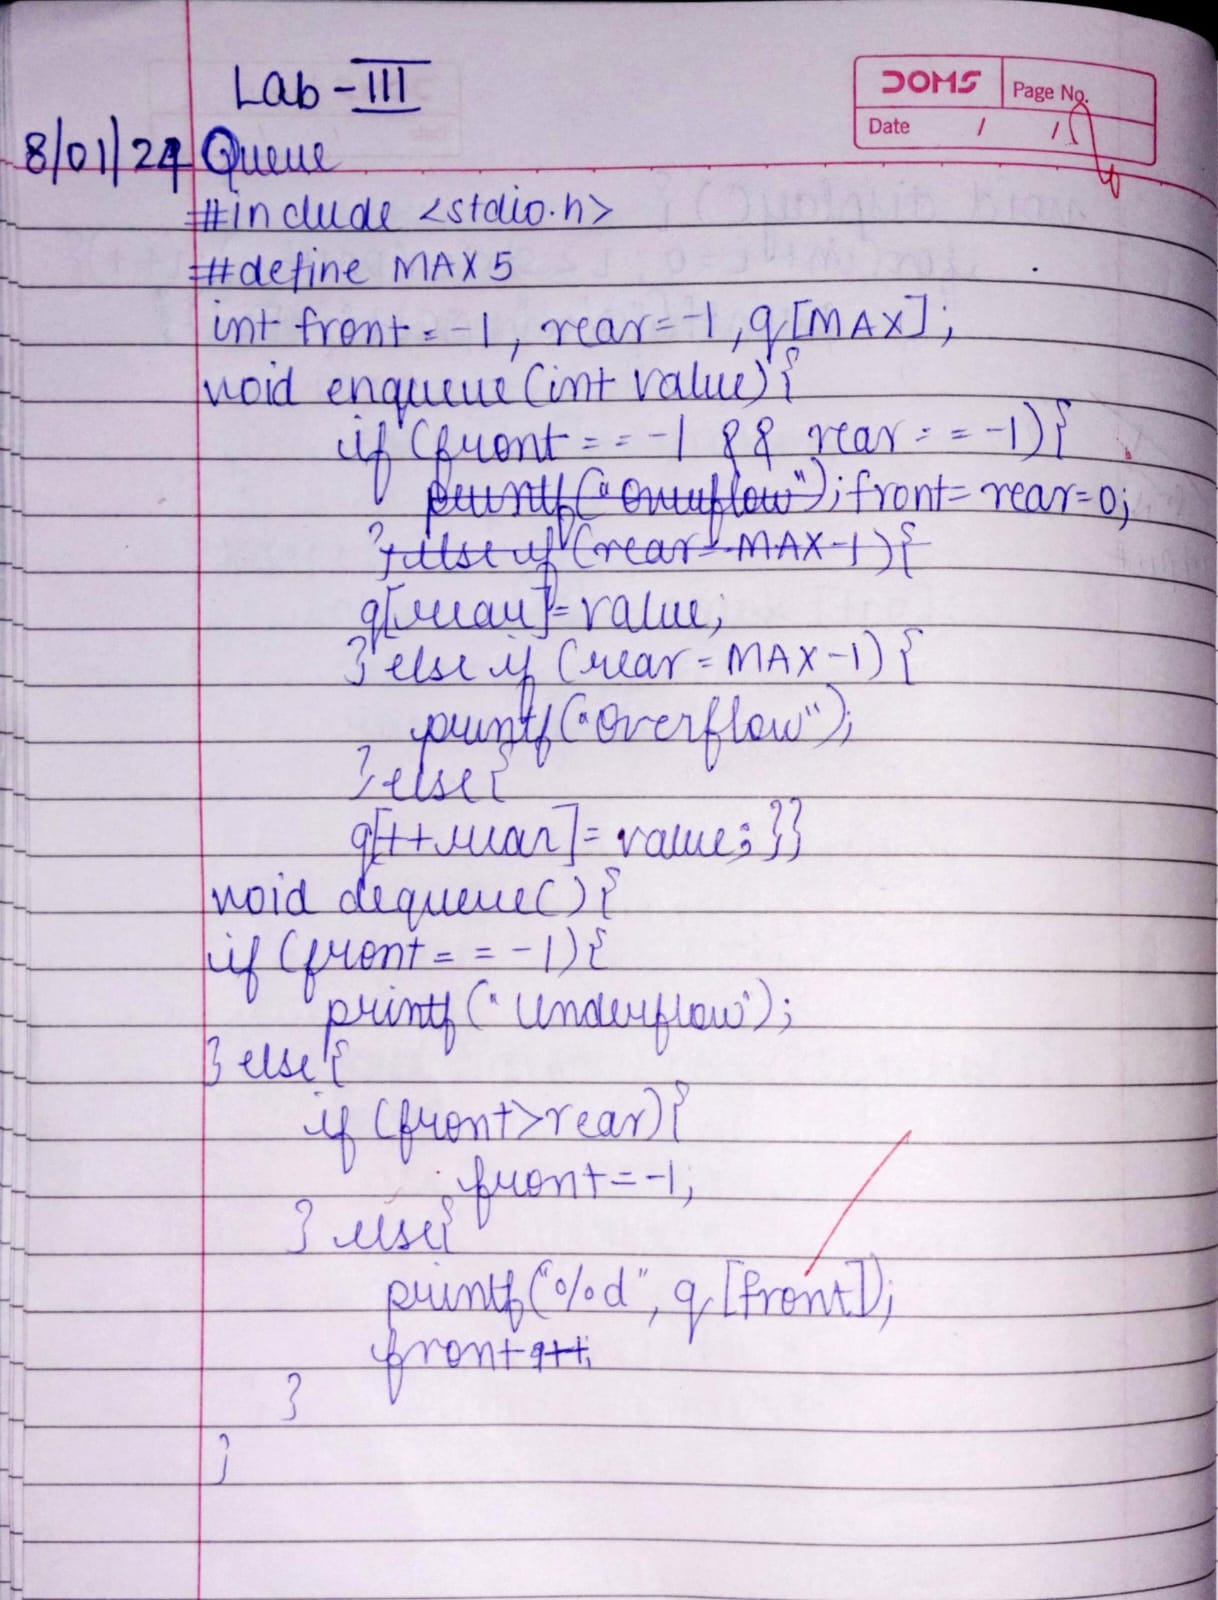 Lab - III
DOMS
Page No.
Date / /
8/01/24 Queue
#include <stdio.h>
#define MAX 5
int front = -1, rear = -1, q[MAX];
void enqueue (int value) {
if (front == -1 && rear == -1) {
printf("Overflow"); front = rear = 0;
} else if (rear = MAX-1) {
q[rear] = value;
} else if (rear = MAX-1) {
printf("Overflow");
} else {
q[++rear] = value; }}
void dequeue() {
if (front == -1) {
printf("Underflow");
} else {
if (front > rear) {
front = -1;
} else {
printf("%d", q[front]);
front++;
}
}